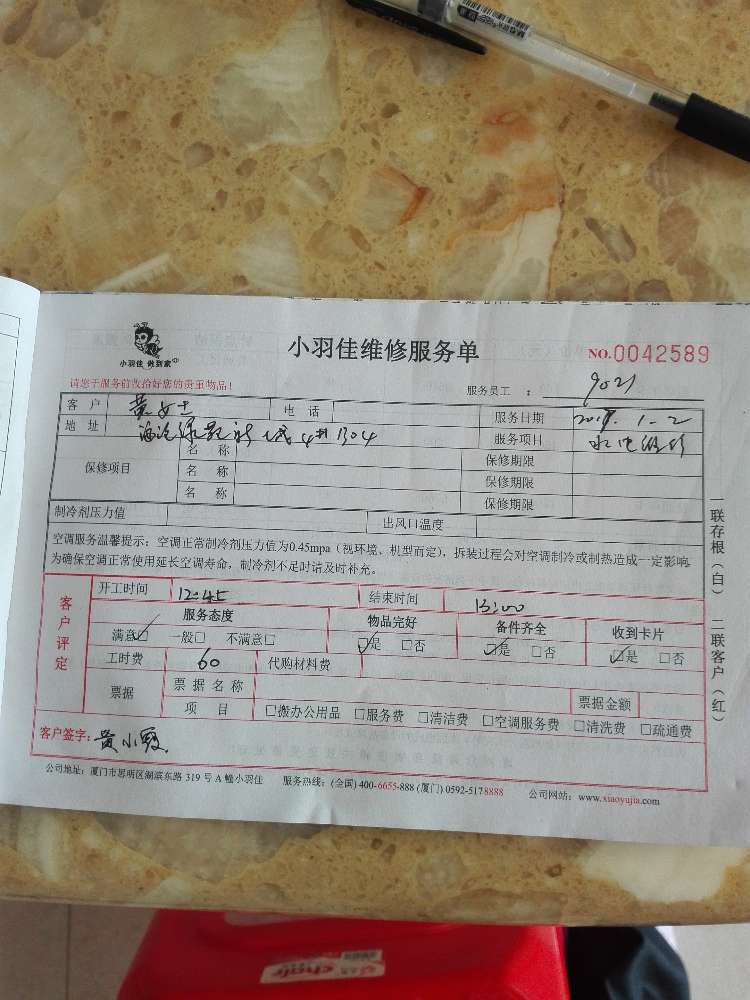 小羽佳 做到家
小羽佳维修服务单
NO.0042589
请您于服务前收拾好您的贵重物品！
服务员工 ： 9021
客 户 黄女士 电 话 服务日期 1-2
地 址 4#1304 服务项目 水电维修
保修项目
名 称 保修期限
名 称 保修期限
名 称 保修期限
制冷剂压力值 出风口温度
空调服务温馨提示：空调正常制冷剂压力值为0.45mpa（视环境、机型而定），拆装过程会对空调制冷或制热造成一定影响，
为确保空调正常使用延长空调寿命，制冷剂不足时请及时补充。
客户评定
开工时间 12:45 结束时间 13:00
服务态度 物品完好 备件齐全 收到卡片
满意☑ 一般□ 不满意□ ☑是 □否 ☑是 □否 ☑是 □否
工时费 60 代购材料费
票据 票据名称 票据金额
项 目 □搬办公用品 □服务费 □清洁费 □空调服务费 □清洗费 □疏通费
客户签字：黄小霞
公司地址：厦门市思明区湖滨东路 319 号 A 幢小羽佳 服务热线：(全国) 400-6655-888 (厦门) 0592-5178888 公司网站：www.xiaoyujia.com
一联存根（白） 二联客户（红）
chair